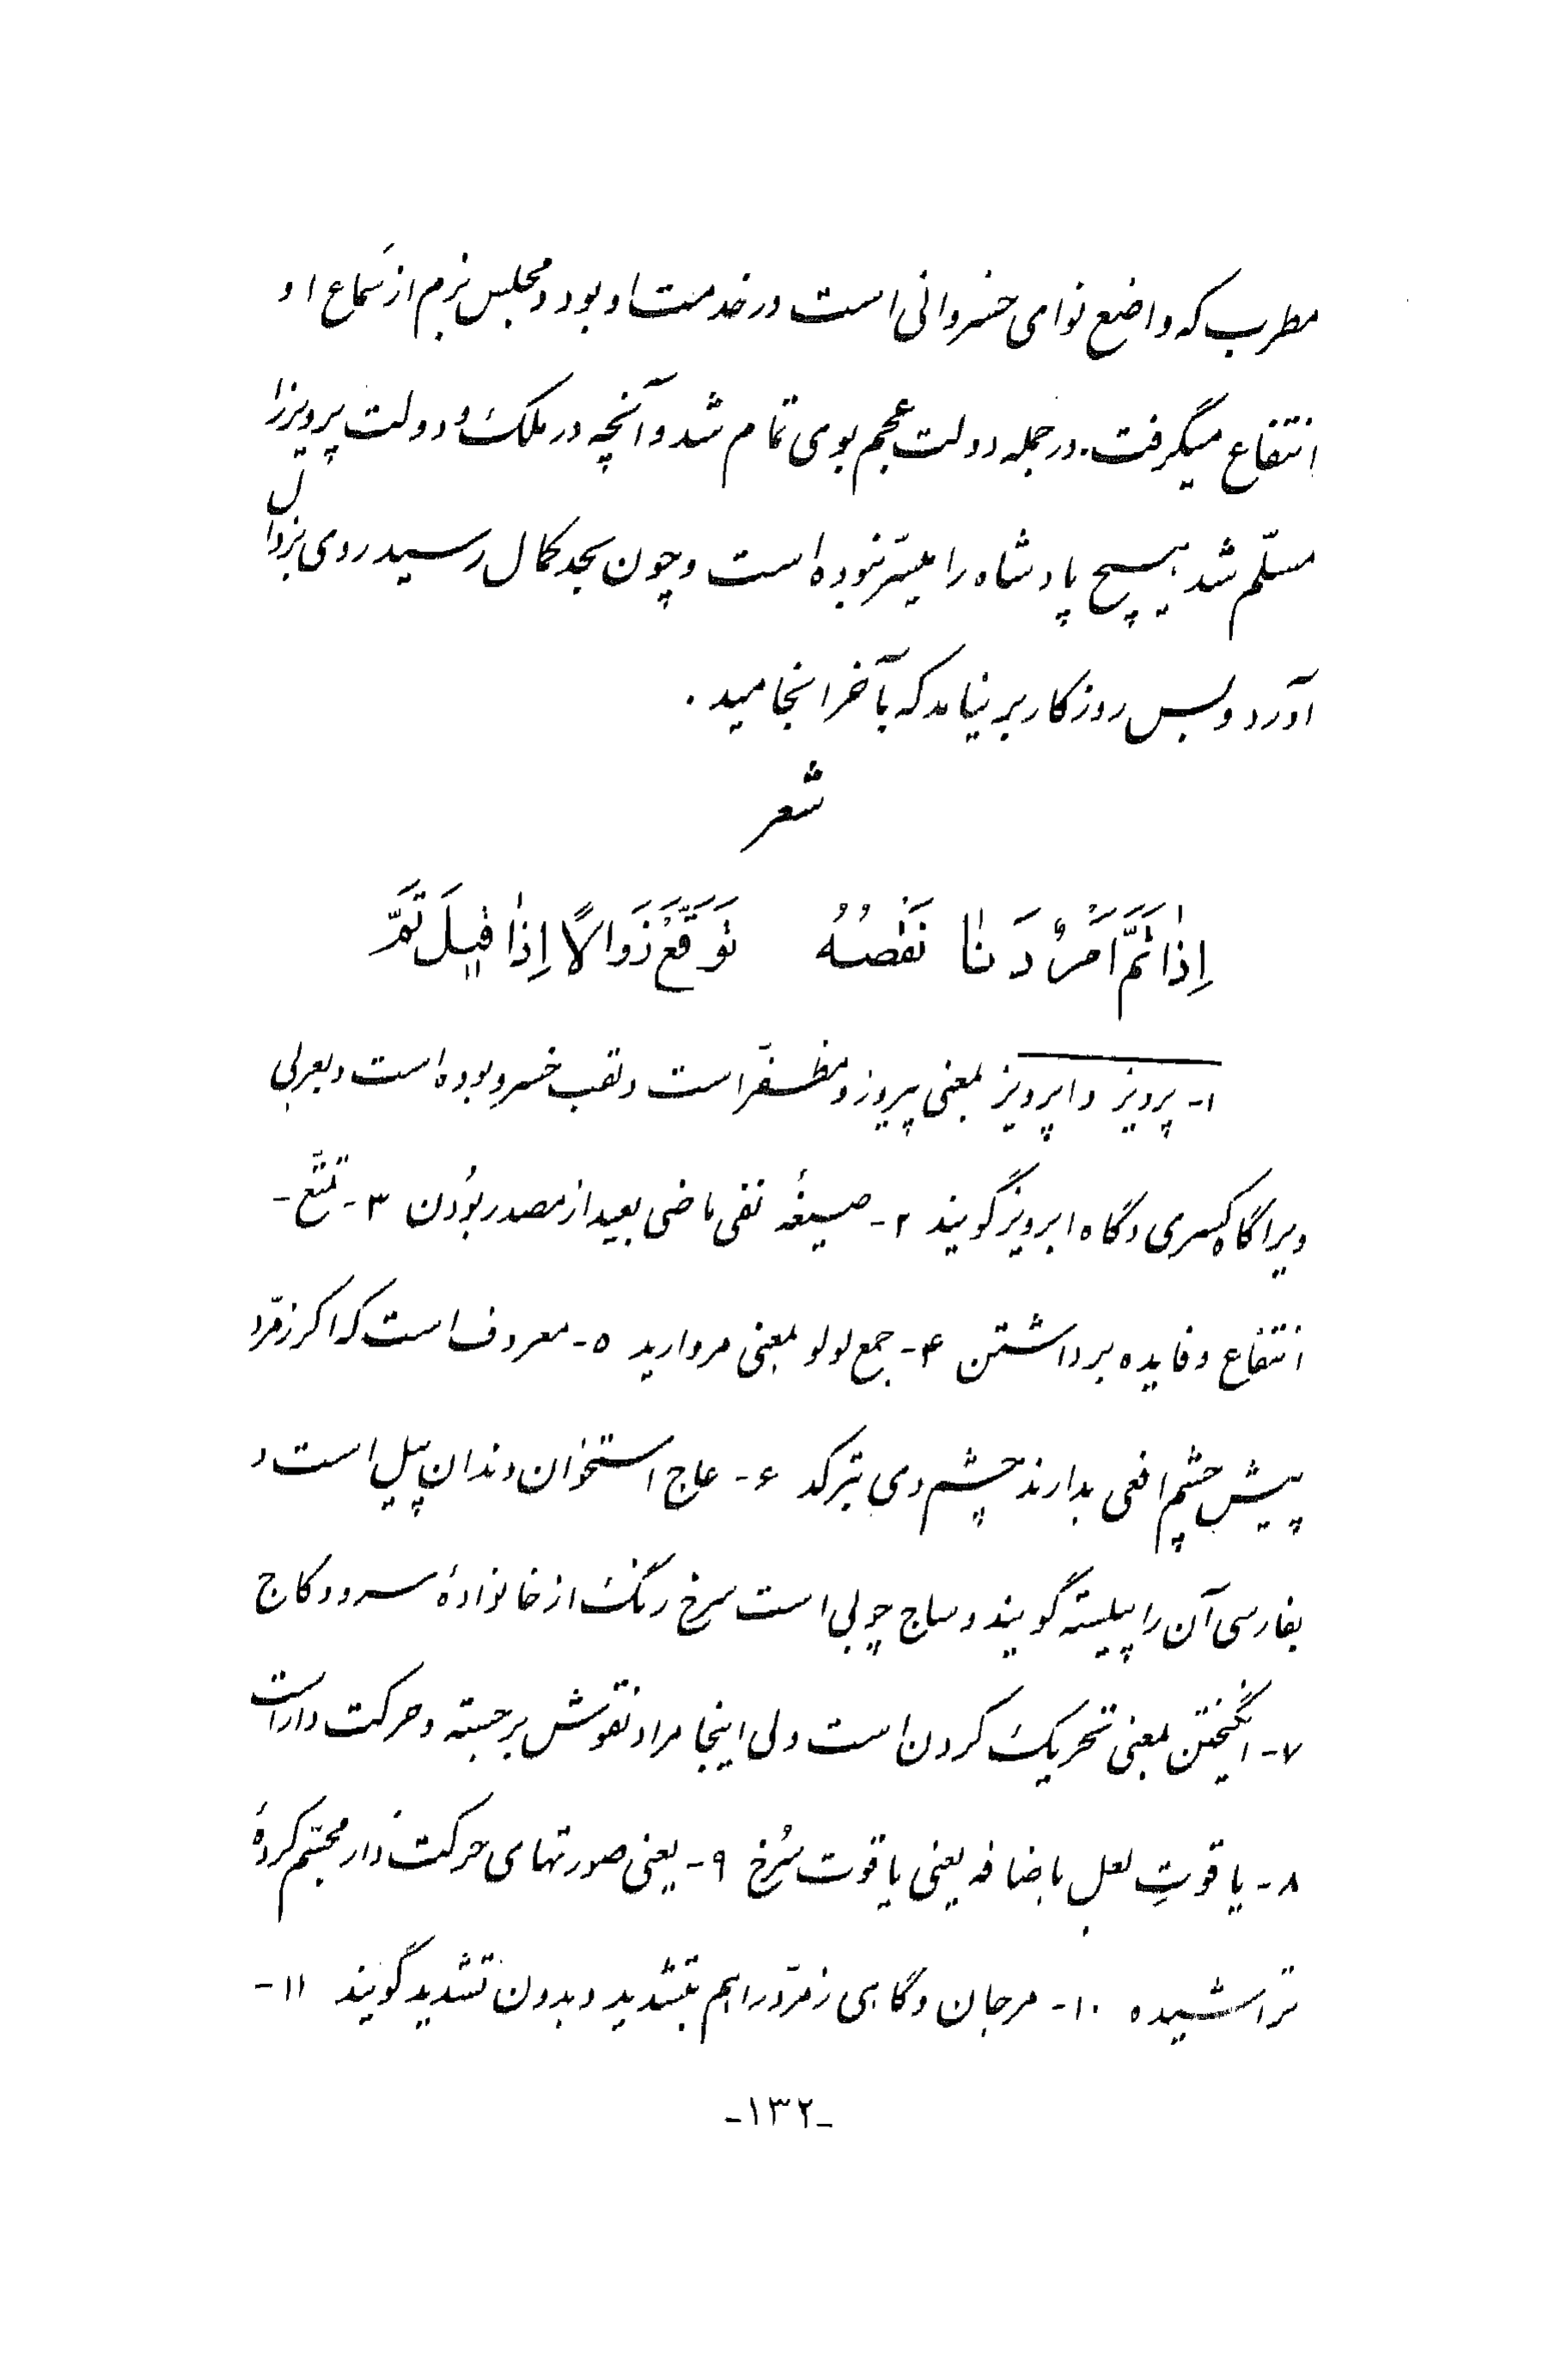 مطرب که واضع نوای خسروانی است در خدمت او بود و مجلس بزم از سَماع او
انتفاع میگرفت. در جمله دولت عجم بوی تمام شد و آنچه در ملک و دولت پرویز را
مسلّم شد هیچ پادشاه را میسّر نبوده است و چون بحد کمال رسید روی بزوال
آورد و بس روزگار بر نیامد که بآخر انجامید .
شعر
اِذٰا تَمَّ اَمْرٌ دَنٰا نَقْصُهُ    تَوَقَّعْ زَوَالاً اِذٰا قیٖلَ تَمَّ
۱- پرویز و اپرویز بمعنی پیروز و مظفّر است و لقب خسرو بوده است و بعربی
ویرا گاه کسری و گاه ابرویز گویند ۲- صیغهٔ نفی ماضی بعید از مصدر بُودن ۳- تمتّع -
انتفاع و فایده برداشتن ۴- جمع لولو بمعنی مروارید ۵- معروف است که اگر زمرّد
پیش چشم افعی بدارند چشم وی بترکد ۶- عاج استخوان دندان پیل است و
بفارسی آن را پیلسته گویند و ساج چوبی است سرخ رنگ از خانوادهٔ سرو و کاج
۷- انگیختن بمعنی تحریک کردن است ولی اینجا مراد نقوش برجسته و حرکت دار است
۸- یاقوتِ لعل باضافه یعنی یاقوت سُرخ ۹- یعنی صورتهای حرکت دار مجسّم کردهٔ
تراشیده ۱۰- مرجان و گاهی زمرّد را هم بتشدید و بدون تشدید گویند ۱۱-
-۱۳۲-